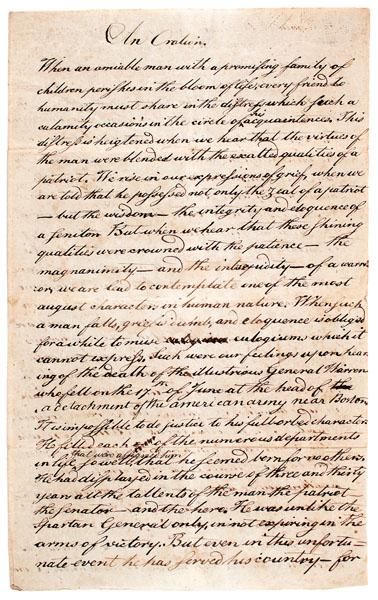 An Oration.
When an amiable man with a promising family of
children perishes in the bloom of life, every friend to
humanity must share in the distress which such a
calamity occasions in the circle of his acquaintences. This
distress is heightened when we hear that the virtues of
the man were blended with the exalted qualities of a
patriot. We rise in our expressions of grief, when we
are told that he possessed not only the zeal of a patriot
— but the wisdom — the integrity and eloquence of
a senator. But when we hear that these shining
qualities were crowned with the patience — the
magnanimity — and the intrepidity — of a warri-
or we are lead to contemplate one of the most
august characters in human nature. When such
a man falls, grief is dumb, and eloquence is obliged
for a while to muse eulogiums which it
cannot express. Such were our feelings upon hear
ing of the death of the illustrious General Warren
who fell on the 17th of June at the head of
a detachment of the american army near Boston.
It is impossible to do justice to his full orbed character.
He filled each of the numerous departments
in life that were assigned him so well, that he seemed born for no other.
He had displayed in the course of three and thirty
years all the tallents of the man the patriot —
the senator — and the hero. He was unlike the
Spartan General only, in not expiring in the
arms of victory. But even in this unfortu-
nate event he has served his country — for